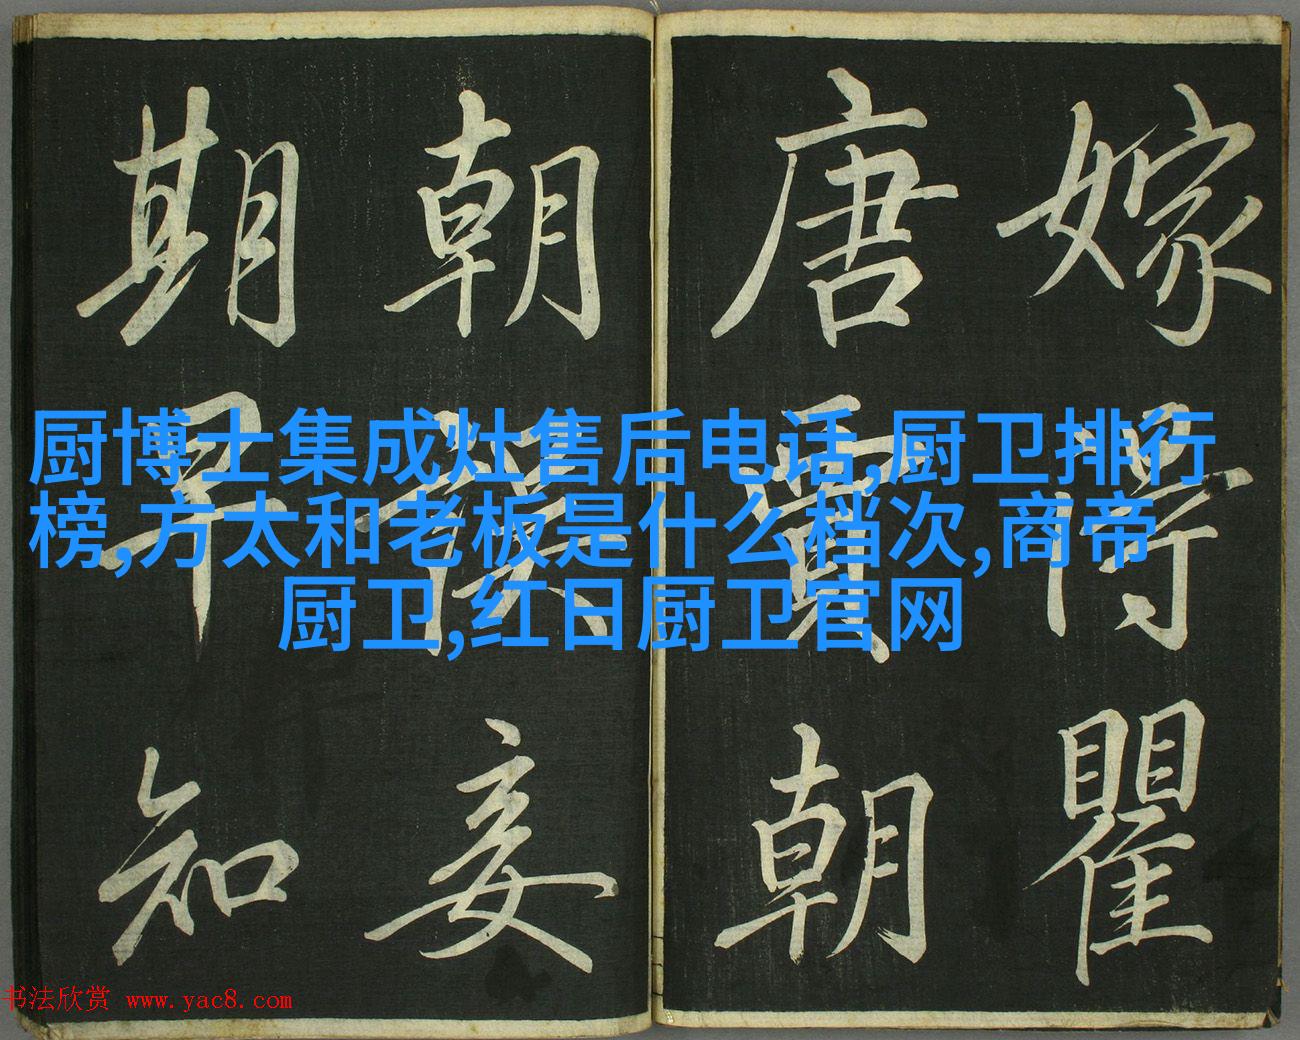 嫁得瞿
唐賈朝
朝誤妾
期早知
厨博士集成灶售后电话,厨卫排行
榜,方太和老板是什么档次,商帝
厨卫,红日厨卫官网
书法欣赏 www.yac8.com